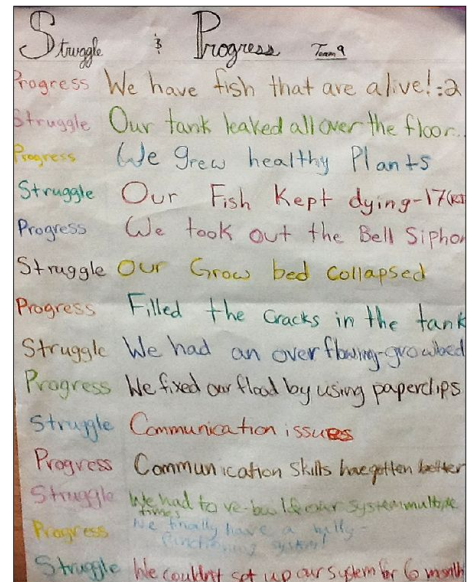 Struggle & Progress Team 9
Progress We have fish that are alive!:2
Struggle Our tank leaked all over the floor.
Progress We grew healthy Plants
Struggle Our Fish Kept dying-17
Progress We took out the Bell Siphon
Struggle Our Grow bed collapsed
Progress Filled the cracks in the tank
Struggle We had an overflowing-growbed
Progress We fixed our flood by using paperclips
Struggle Communication issues
Progress Communication Skills have gotten better
Struggle We had to re-build our system multiple
times
Progress We finally have a fully-
functioning system!
Struggle We couldn't set up our system for 6 month